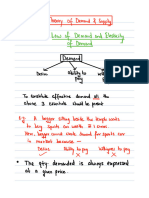 Theory of Demand & Supply
Law of Demand and Elasticity
of Demand
Demand
Desire Ability to Willingness to
pay pay
To constitute effective demand all the
above 3 essentials should be present
E.g. A beggar sitting beside the length wants
to buy Sports car worth ₹ 1 crore.
Now, beggar cannot create demand for sports car
in market because -
Desire Ability to pay Willingness to pay
• The qty demanded is always expressed
at a given price.